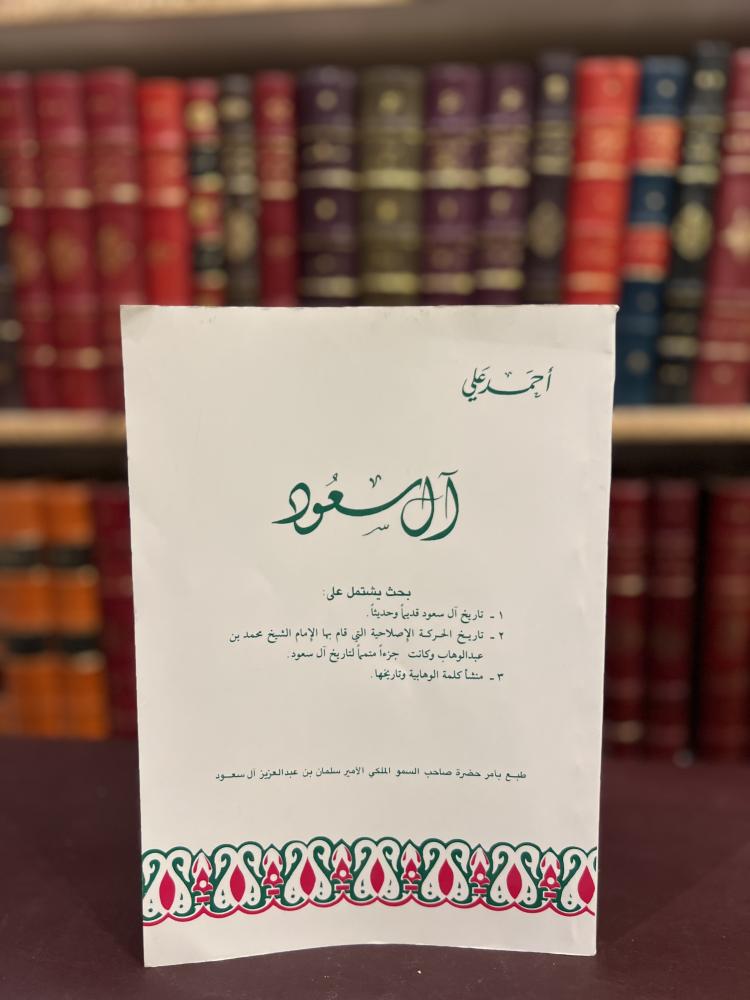 أحمد علي
آل سعود
بحث يشتمل على:
١ - تاريخ آل سعود قديماً وحديثاً.
٢ - تاريخ الحركة الإصلاحية التي قام بها الإمام الشيخ محمد بن
عبدالوهاب وكانت جزءاً متمماً لتاريخ آل سعود.
٣ - منشأ كلمة الوهابية وتاريخها.
طبع بأمر حضرة صاحب السمو الملكي الأمير سلمان بن عبدالعزيز آل سعود